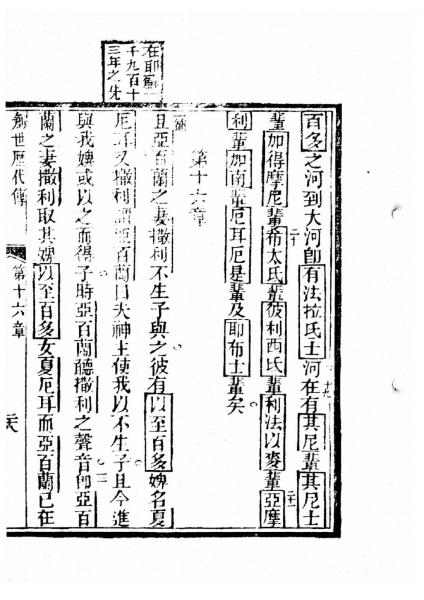 在耶穌一
千九百十
三年之先
百多之河到大河即有法拉氏士河在有其尼輩其尼士
輩加得摩尼輩希太氏輩彼利西氏輩利法以麥輩亞摩
利輩加南輩厄耳厄是輩及耶布士輩矣
第十六章
且亞百蘭之妻撒利不生子與之彼有以至百多婢名夏
厄耳又撒利謂亞百蘭曰夫神主使我以不生子且今進
與我婢或以之而得子時亞百蘭聽撒利之聲音即亞百
蘭之妻撒利取其婢以至百多女夏厄耳而亞百蘭已在
創世歷代傳 第十六章